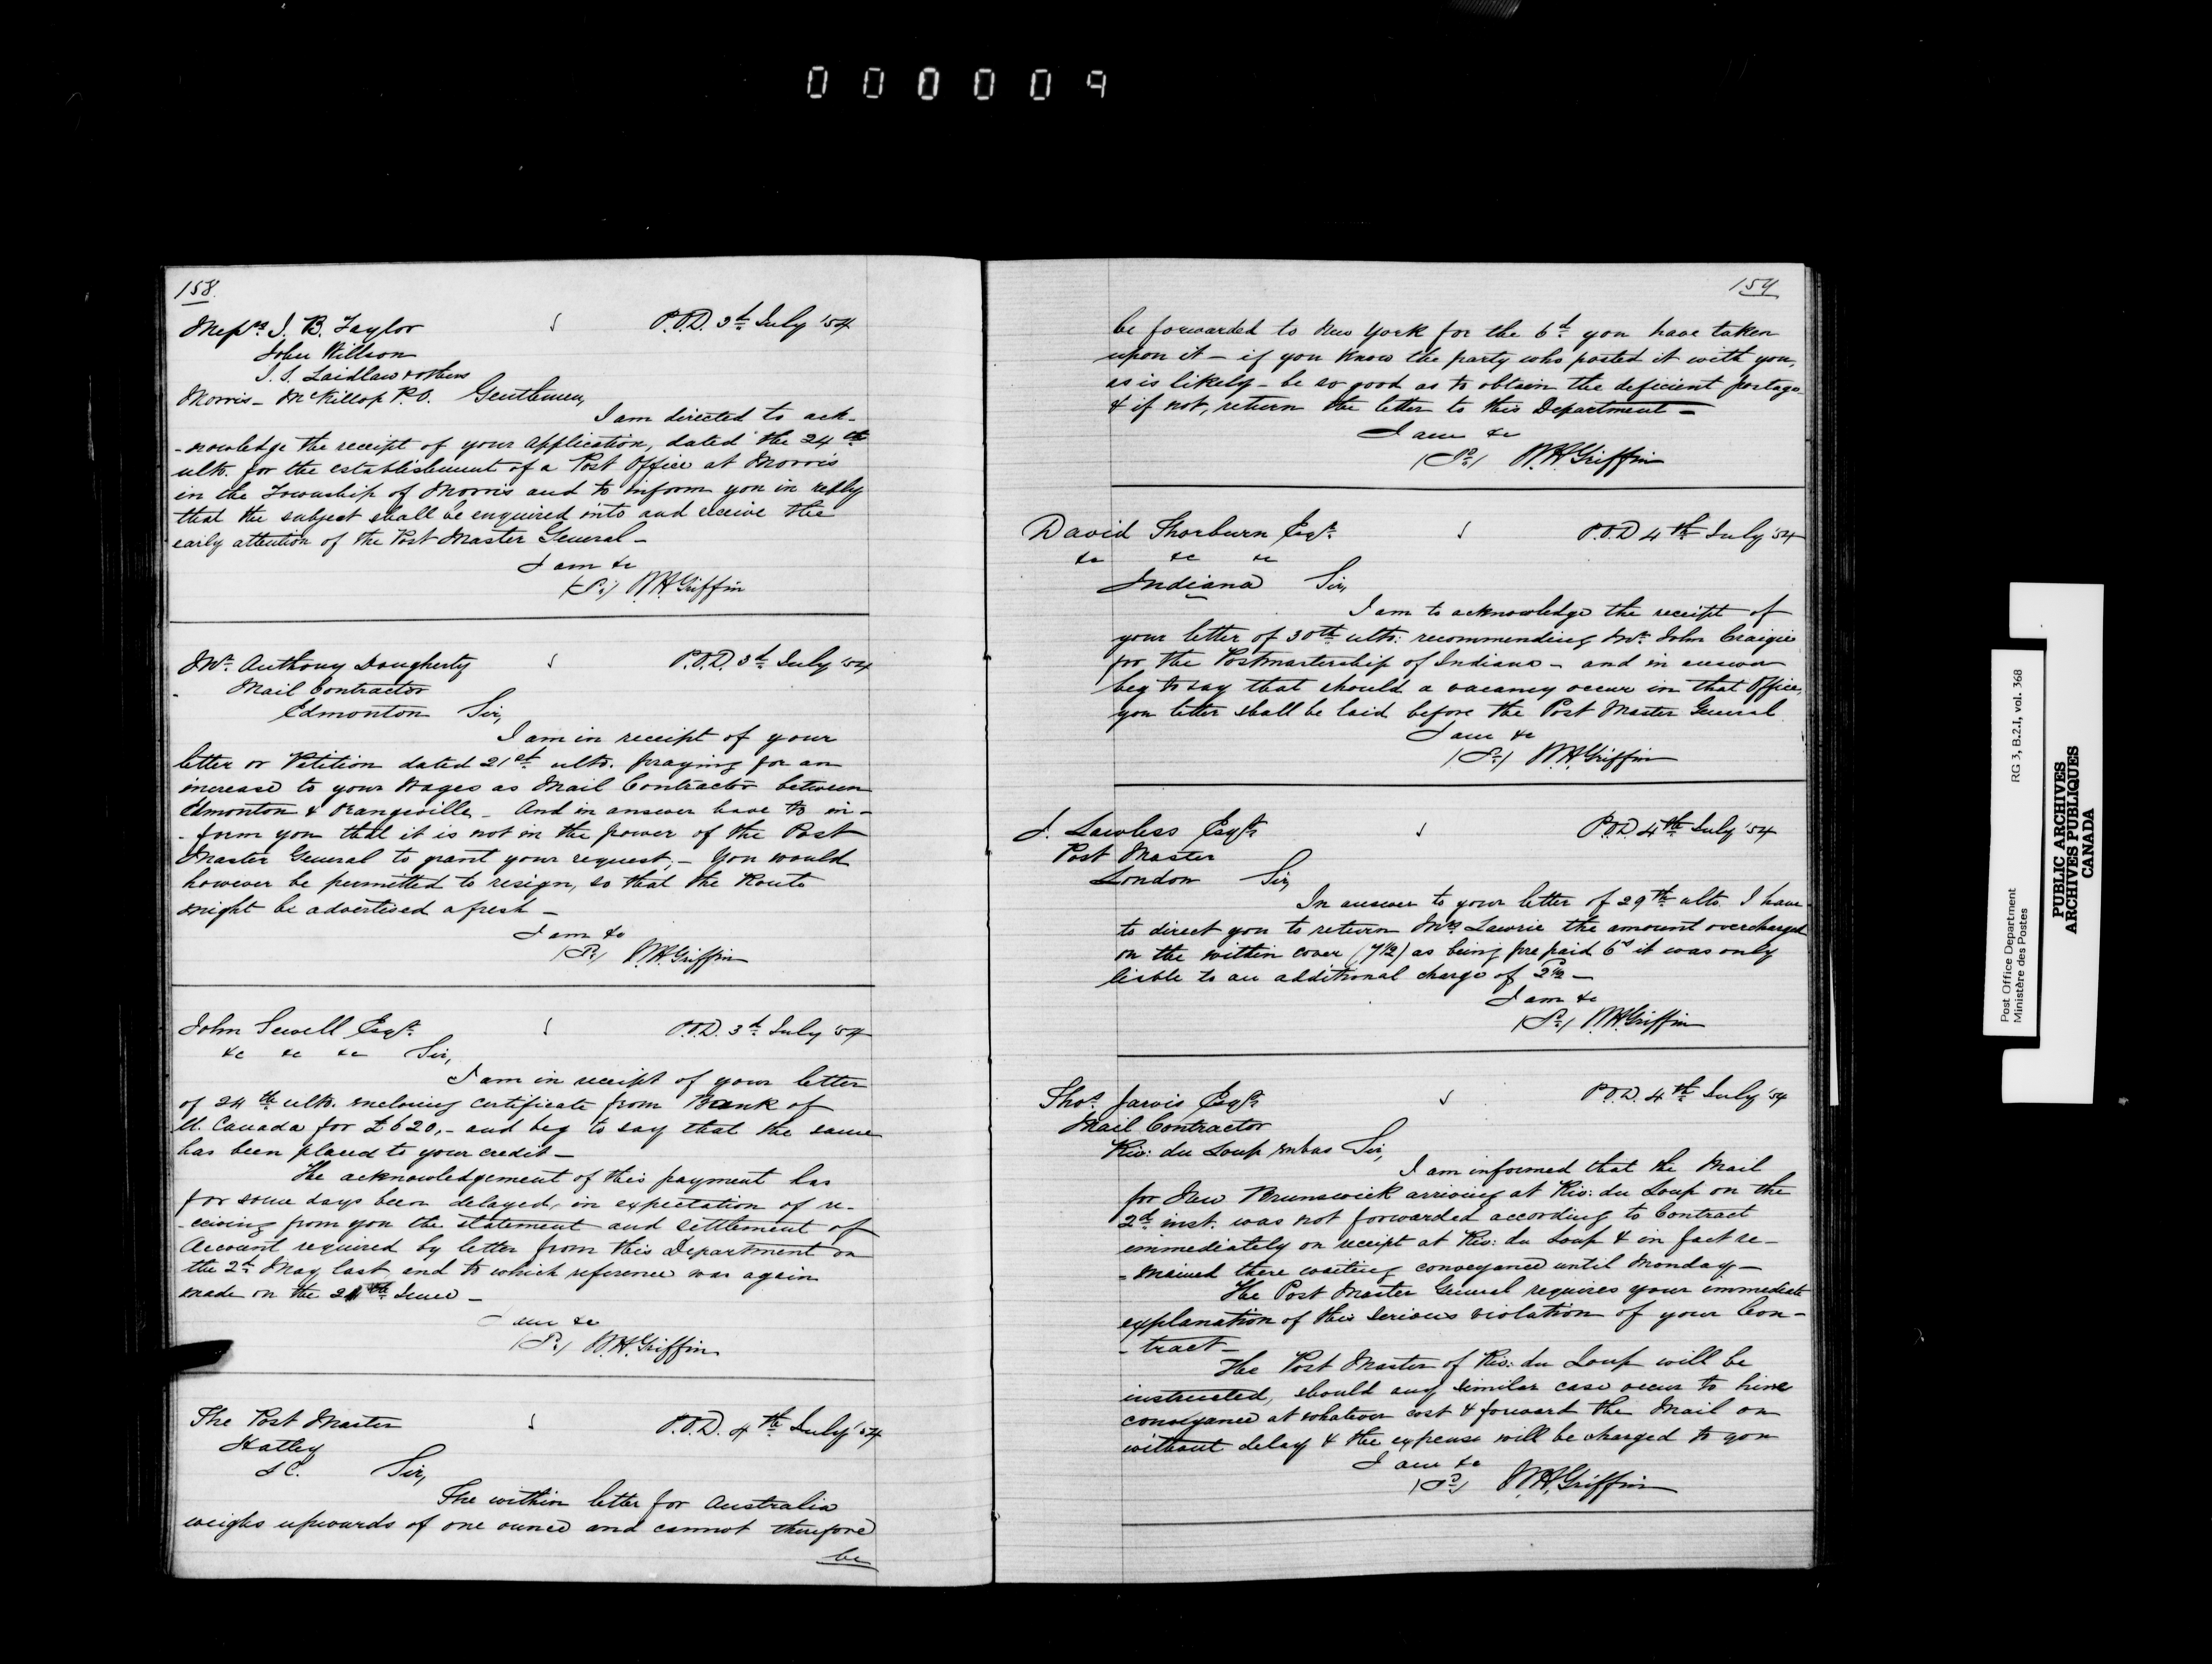 000009
158.
Messrs J. B. Taylor P.O.D. 3d July '54
John Willson
J. S. Laidlaw & others
Morris - McKillop P.O. Gentlemen,
I am directed to ack-
-nowledge the receipt of your application, dated the 24th
ulto. for the establishment of a Post Office at Morris
in the Township of Morris and to inform you in reply
that the subject shall be enquired into and receive the
early attention of the Post Master General -
I am &c
(Sd.) W.H. Griffin
Mr. Anthony Dougherty P.O.D. 3d July '54
Mail Contractor
Edmonton Sir,
I am in receipt of your
letter or Petition dated 21st ulto. praying for an
increase to your Wages as Mail Contractor between
Edmonton & Orangeville - And in answer have to in-
-form you that it is not in the power of the Post
Master General to grant your request, - You would
however be permitted to resign, so that the Route
might be advertised afresh -
I am &c
(Sd.) W.H. Griffin
John Sewell Esqr. P.O.D. 3d July '54
&c &c &c Sir,
I am in receipt of your letter
of 24th ulto. enclosing certificate from Bank of
U. Canada for £620, - and beg to say that the same
has been placed to your credit -
The acknowledgement of this payment has
for some days been delayed, in expectation of re-
-ceiving from you the statement and settlement of
Account required by letter from this Department on
the 2d May last and to which reference was again
made on the June -
am &c
(Sd.) W.H. Griffin
The Post Master P.O.D. 4th July '54
Hatley
LC. Sir,
The within letter for Australia
weighs upwards of one ounce and cannot therefore
be
159
be forwarded to New York for the 6d you have taken
upon it - if you know the party who posted it with you,
as is likely - be so good as to obtain the deficient postage
& if not, return the letter to this Department -
I am &c
(Sd.) W.H. Griffin
David Thorburn Esqr. P.O.D 4th July '54
&c &c &c
Indiana Sir,
I am to acknowledge the receipt of
your letter of 30th ulto: recommending Mr. John Craigie
for the Postmastership of Indiana - and in answer
beg to say that should a vacancy occur in that Office,
you letter shall be laid before the Post Master General
I am &c
(Sd.) W.H. Griffin
J. Lawless Esqr. P.O.D 4th July '54
Post Master
London Sir,
In answer to your letter of 29th ulto I have
to direct you to return Mrs Lawrie the amount overcharged
on the within cover (7½) as being prepaid 6d it was only
liable to an additional charge of 2½ -
I am &c
(Sd.) W.H. Griffin
Thos. Jarvis Esqr. P.O.D. 4th July '54
Mail Contractor
Riv: du Loup enbas Sir,
I am informed that the Mail
for New Brunswick arriving at Riv: du Loup on the
2d inst. was not forwarded according to Contract
immediately on receipt at Riv: du Loup & in fact re-
-mained there waiting conveyance until Monday -
The Post Master General requires your immediate
explanation of this serious violation of your Con-
-tract -
The Post Master of Riv: du Loup will be
instructed, should any similar case occur to hire
conveyance at whatever cost & forward the Mail on
without delay & the expense will be charged to you
I am &c
(Sd.) W.H. Griffin
Post Office Department RG 3, B.2.I, vol. 368
Ministère des Postes
PUBLIC ARCHIVES
ARCHIVES PUBLIQUES
CANADA